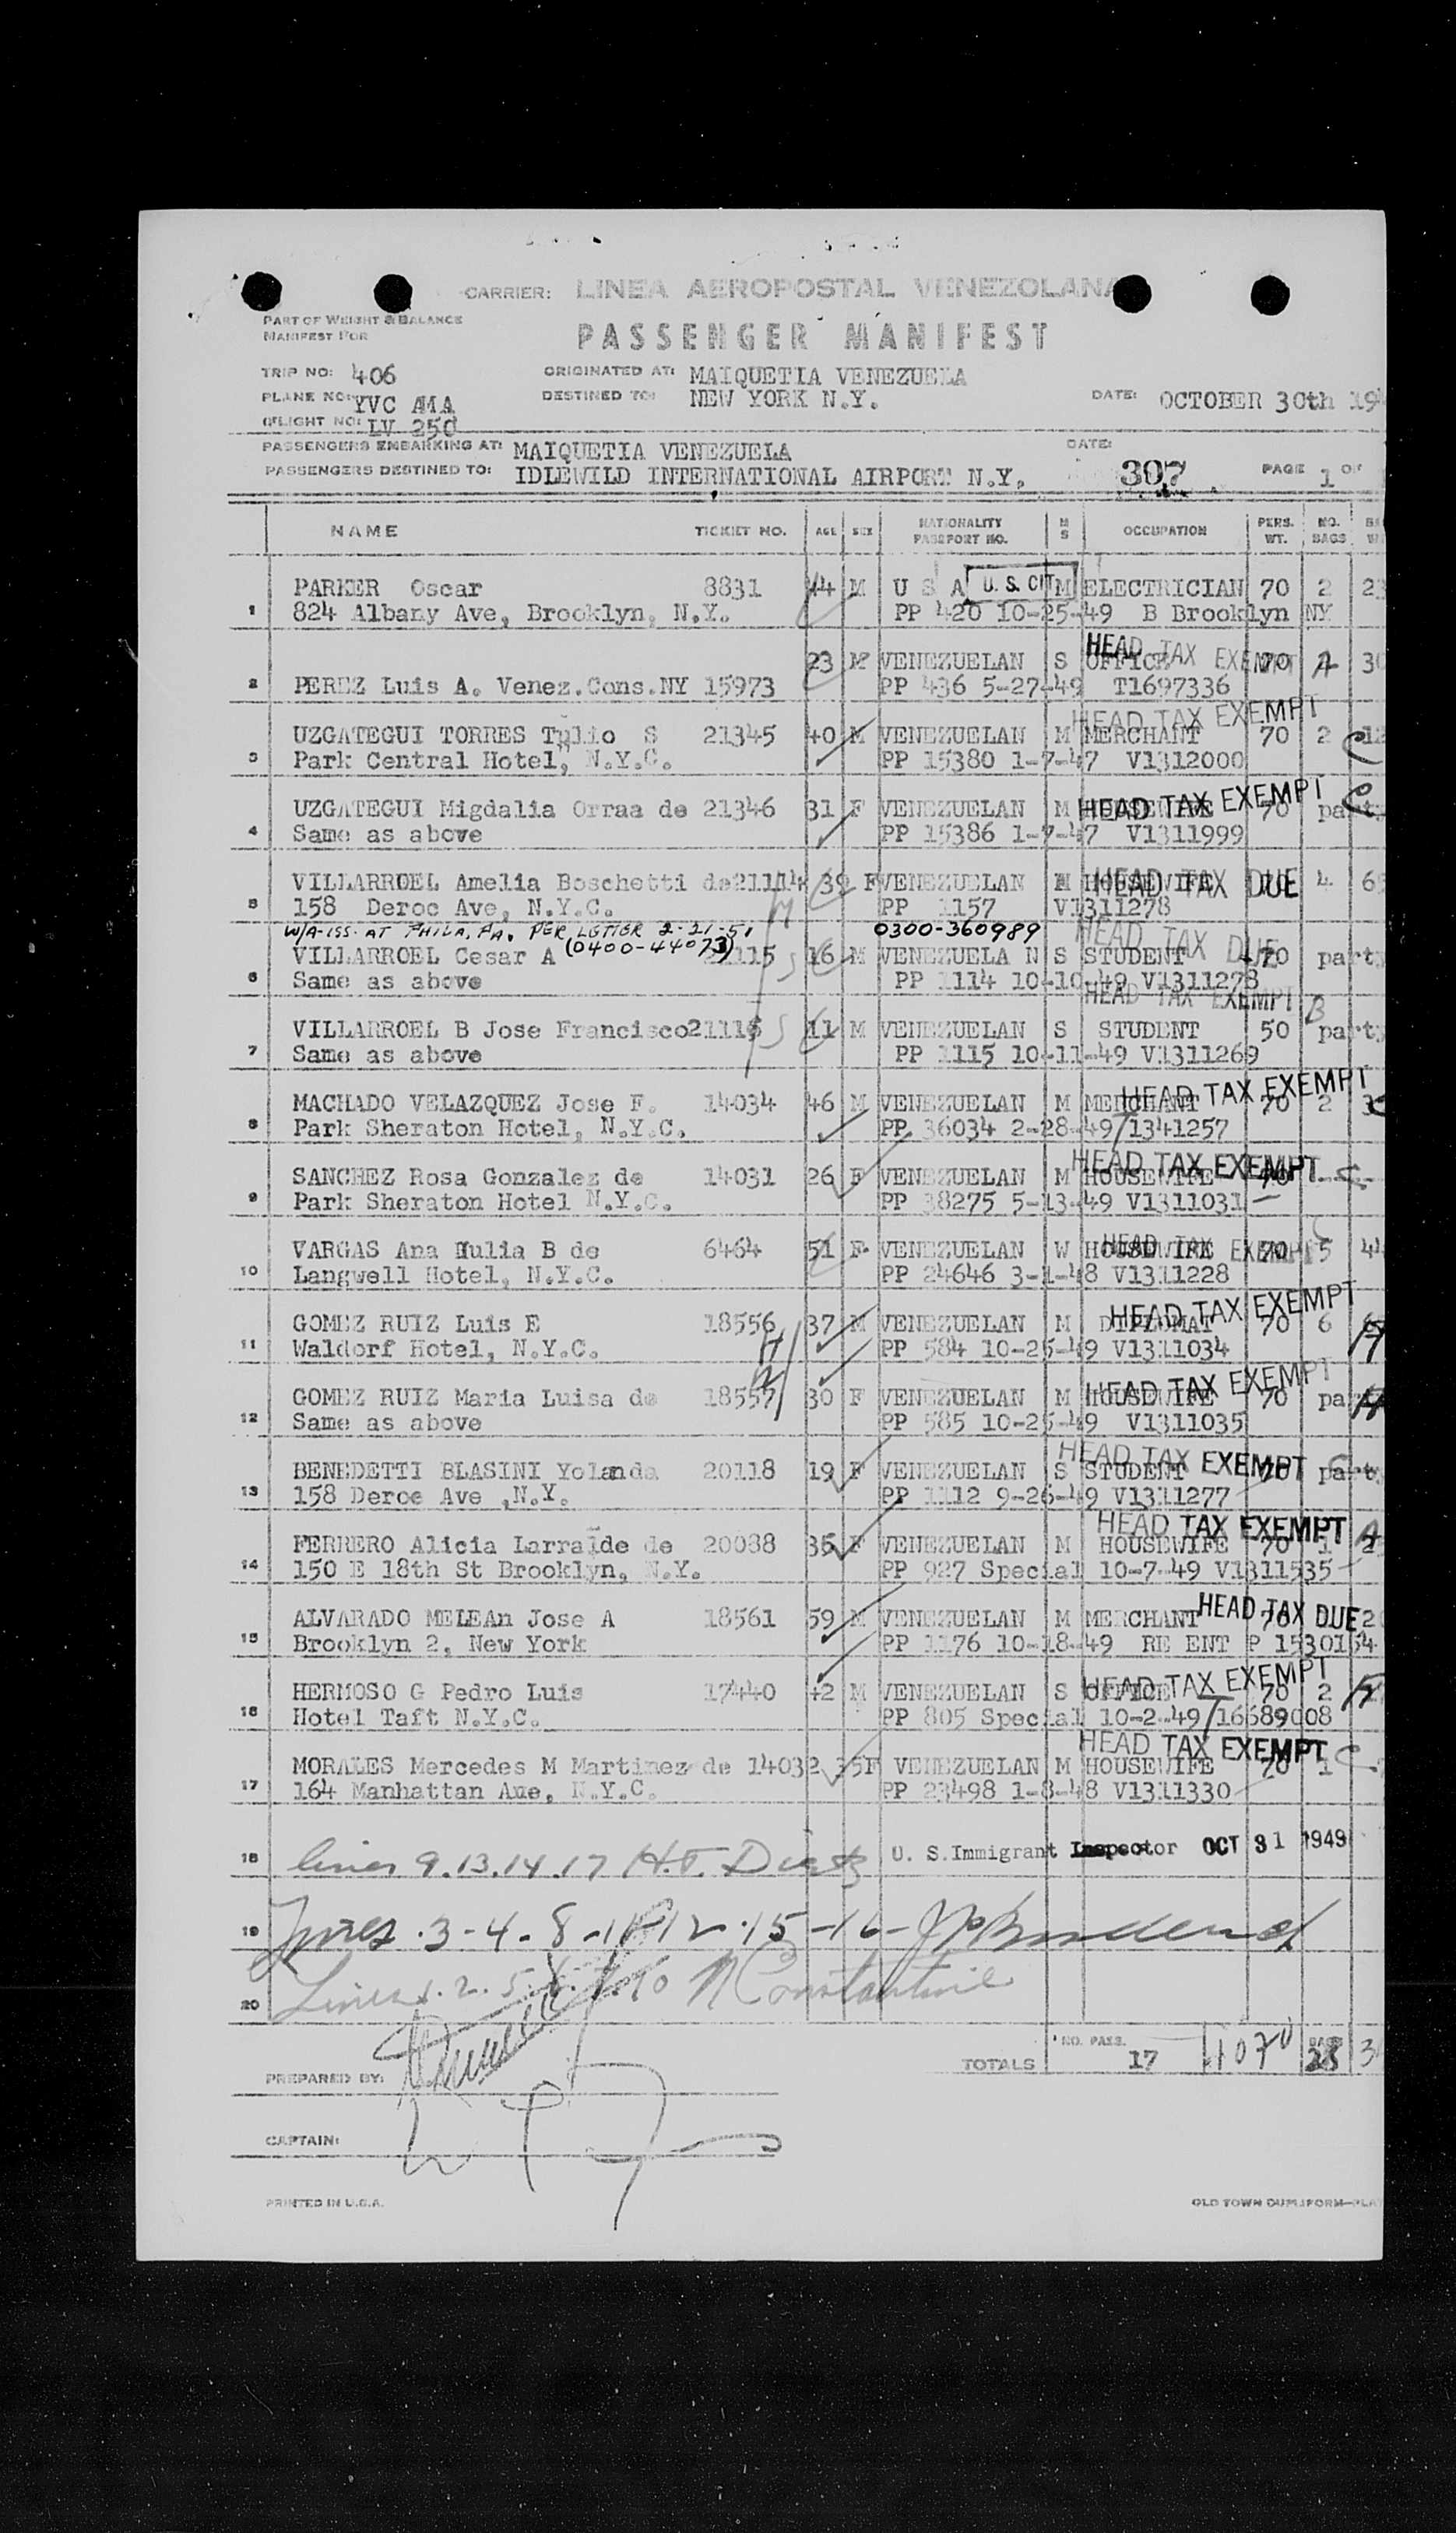 CARRIER: LINEA AEROPOSTAL VENEZOLANA
PART OF WEIGHT & BALANCE
MANIFEST FOR
PASSENGER MANIFEST
TRIP NO: 406 ORIGINATED AT: MAIQUETIA VENEZUELA
PLANE NO: YVC AMA DESTINED TO: NEW YORK N.Y. DATE: OCTOBER 30th 19
FLIGHT NO: LV 250
PASSENGERS EMBARKING AT: MAIQUETIA VENEZUELA DATE:
PASSENGERS DESTINED TO: IDLEWILD INTERNATIONAL AIRPORT N.Y. 307 PAGE 1 OF
NAME TICKET NO. AGE SEX NATIONALITY PASSPORT NO. M S OCCUPATION PERS. WT. NO. BAGS
PARKER Oscar 8831 44 M U S A U.S. CIT M ELECTRICIAN 70 2
1 824 Albany Ave, Brooklyn, N.Y. PP 420 10-25-49 B Brooklyn NY
HEAD TAX EXEMPT
23 M VENEZUELAN S OFFICE 70
2 PEREZ Luis A. Venez.Cons.NY 15973 PP 436 5-27-49 T1697336
HEAD TAX EXEMPT
UZGATEGUI TORRES Tulio S 21345 40 M VENEZUELAN M MERCHANT 70 2 C
3 Park Central Hotel, N.Y.C. PP 15380 1-7-47 V1312000
UZGATEGUI Migdalia Orraa de 21346 31 F VENEZUELAN M HOUSEWIFE HEAD TAX EXEMPT 70 C
4 Same as above PP 15386 1-7-47 V1311999
VILLARROEL Amelia Boschetti de 21114 39 F VENEZUELAN M HOUSEWIFE HEAD TAX DUE 4
5 158 Deroe Ave, N.Y.C. PP 1157 V1311278
W/A-ISS. AT PHILA, PA. PER LETTER 2-21-51 0300-360989
(0400-44073) HEAD TAX DUE
VILLARROEL Cesar A 21115 16 M VENEZUELA N S STUDENT 70 part
6 Same as above PP 1114 10-10-49 V1311278
HEAD TAX EXEMPT B
VILLARROEL B Jose Francisco 21116 11 M VENEZUELAN S STUDENT 50 part
7 Same as above PP 1115 10-11-49 V1311269
MACHADO VELAZQUEZ Jose F. 14034 46 M VENEZUELAN M MERCHANT HEAD TAX EXEMPT 70 2
8 Park Sheraton Hotel, N.Y.C. PP 36034 2-28-49 T1341257
SANCHEZ Rosa Gonzalez de 14031 26 F VENEZUELAN M HOUSEWIFE HEAD TAX EXEMPT 70 C
9 Park Sheraton Hotel N.Y.C. PP 38275 5-13-49 V1311031
VARGAS Ana Hulia B de 6464 51 F VENEZUELAN W HOUSEWIFE HEAD TAX EXEMPT 70 5 44
10 Langwell Hotel, N.Y.C. PP 24646 3-1-48 V1311228
GOMEZ RUIZ Luis E 18556 37 M VENEZUELAN M DIPLOMAT HEAD TAX EXEMPT 70 6
11 Waldorf Hotel, N.Y.C. PP 584 10-25-49 V1311034
GOMEZ RUIZ Maria Luisa de 18557 30 F VENEZUELAN M HOUSEWIFE HEAD TAX EXEMPT 70
12 Same as above PP 585 10-25-49 V1311035
BENEDETTI BLASINI Yolanda 20118 19 F VENEZUELAN S STUDENT HEAD TAX EXEMPT 70 part
13 158 Deroe Ave ,N.Y. PP 1112 9-26-49 V1311277
FERRERO Alicia Larralde de 20088 35 F VENEZUELAN M HOUSEWIFE HEAD TAX EXEMPT 70 1
14 150 E 18th St Brooklyn, N.Y. PP 927 Special 10-7-49 V1311535
ALVARADO MELEAn Jose A 18561 59 M VENEZUELAN M MERCHANT HEAD TAX DUE 70
15 Brooklyn 2, New York PP 1176 10-18-49 RE ENT P 1530154
HERMOSO G Pedro Luis 17440 42 M VENEZUELAN S OFFICE HEAD TAX EXEMPT 70 2
16 Hotel Taft N.Y.C. PP 805 Special 10-2-49 T16689008
HEAD TAX EXEMPT
MORALES Mercedes M Martinez de 14032 35 F VENEZUELAN M HOUSEWIFE 70 1 C
17 164 Manhattan Aue, N.Y.C. PP 23498 1-8-48 V1311330
18 lines 9.13.14.17 U. S. Immigrant Inspector OCT 31 1949
19 Lines 3-4-8-11-12-15-16
20 Lines 1.2.5.6.7.10 N Constantine
TOTALS NO. PASS. 17 1070 BAGS 28
PREPARED BY:
CAPTAIN:
PRINTED IN U.S.A. OLD TOWN DUPLIFORM—PLA